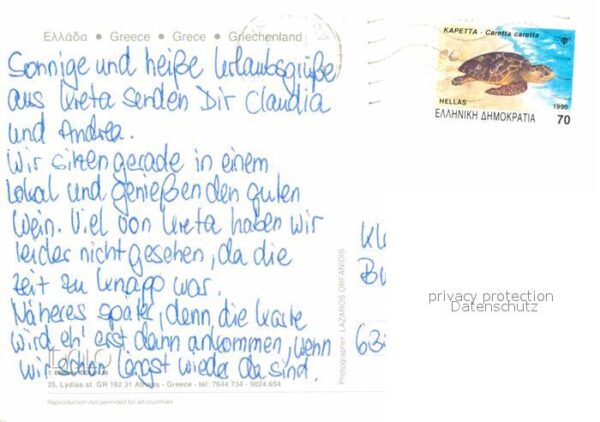 Ελλάδα • Greece • Grece • Griechenland
Sonnige und heiße Urlaubsgrüße
aus Kreta senden Dir Claudia
und Andrea.
Wir sitzen gerade in einem
Lokal und genießen den guten
Wein. Viel von Kreta haben wir
leider nicht gesehen, da die
Zeit zu knapp war.
Näheres später, denn die Karte
wird eh' erst dann ankommen, wenn
wir schon längst wieder da sind.
25, Lydias st. GR 162 31 Athens - Greece - tel: 7644.734 - 9024.654
Reproduction not permitted for all countries
Photographer LAZAROS ORFANIDIS
ΚΑΡΕΤΤΑ - Caretta caretta
HELLAS
1990
ΕΛΛΗΝΙΚΗ ΔΗΜΟΚΡΑΤΙΑ
70
Kl
privacy protection
Datenschutz